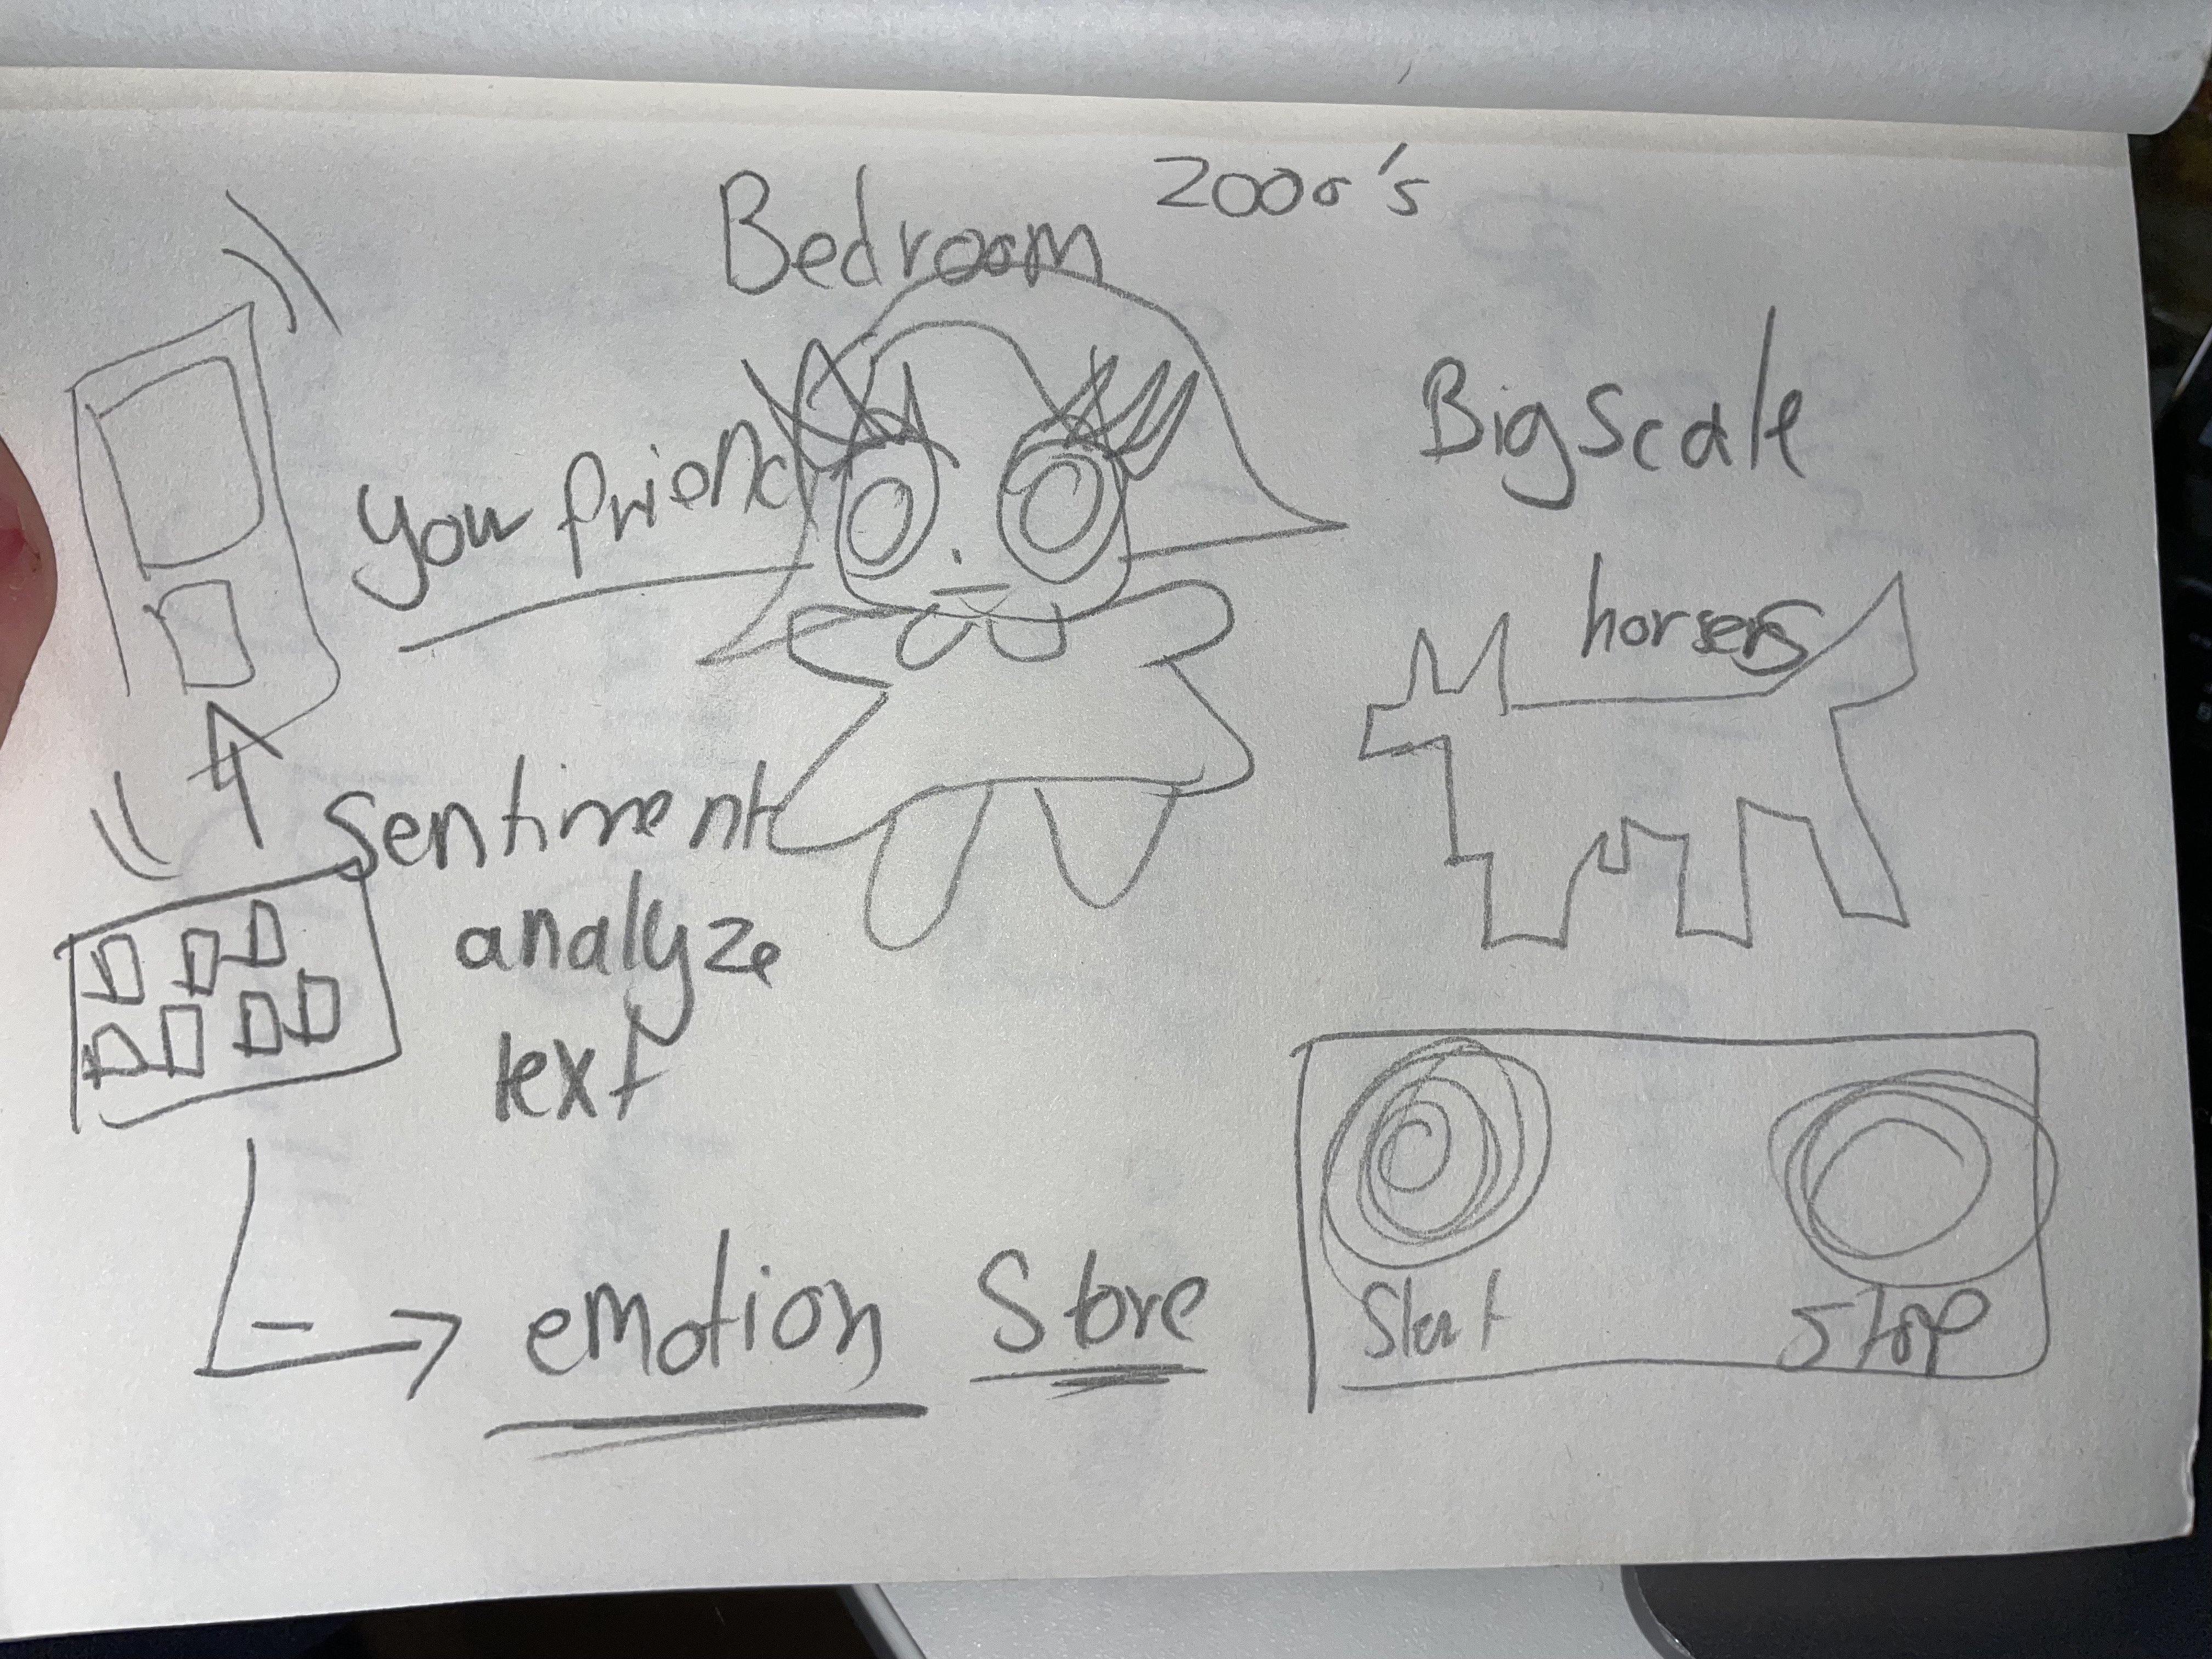 2000's
Bedroom
Big scale
your friend
horses
Sentiment
analyze
text
emotion Store
Start
Stop